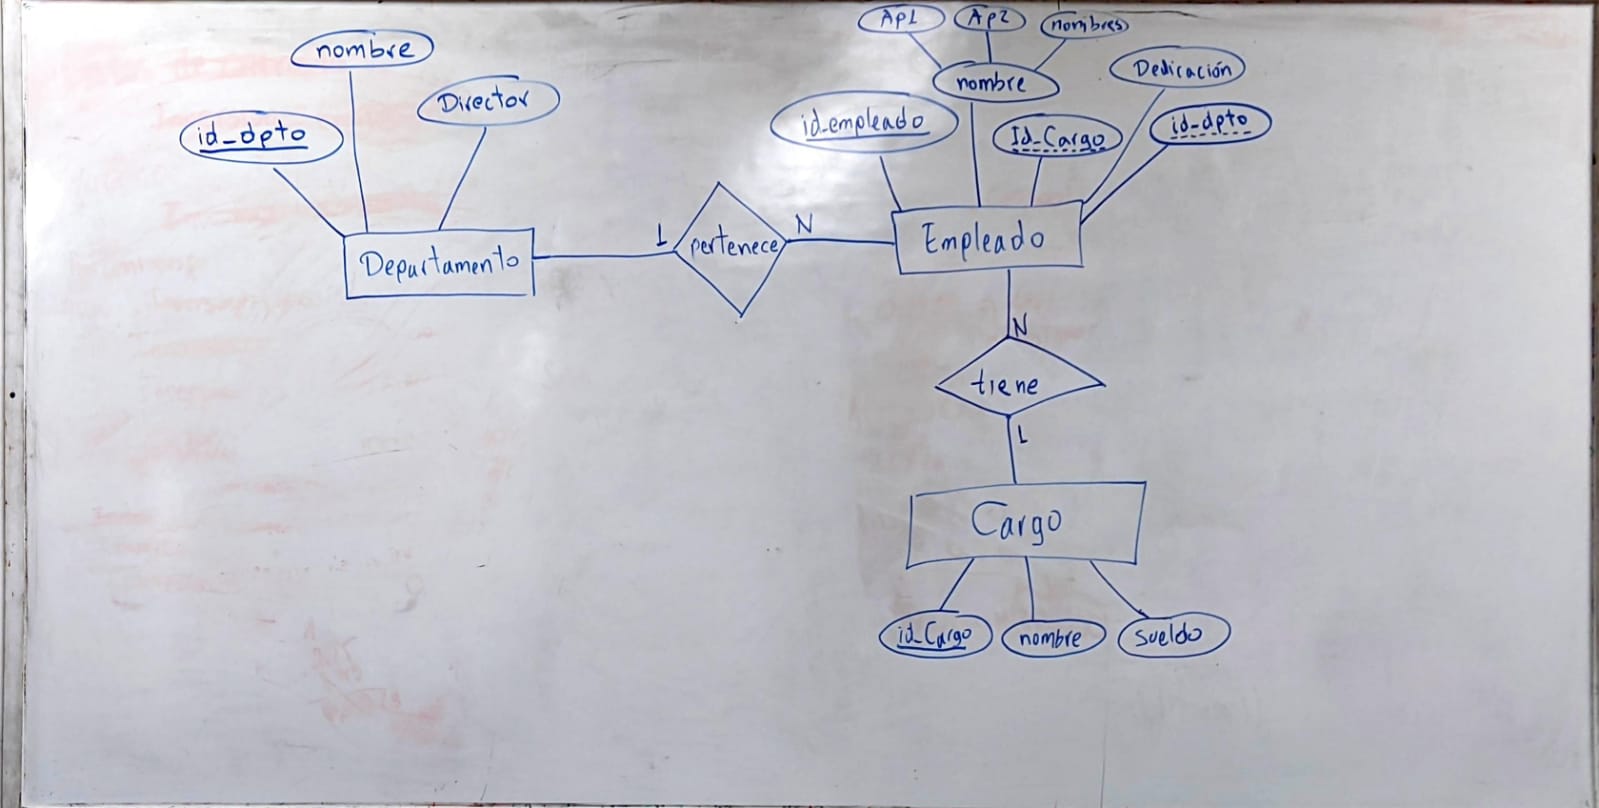 nombre
Director
id_dpto
Departamento
1
pertenece
N
Ap1
Ap2
nombres
nombre
Dedicación
id_empleado
Id_Cargo
id_dpto
Empleado
N
tiene
1
Cargo
id_Cargo
nombre
sueldo